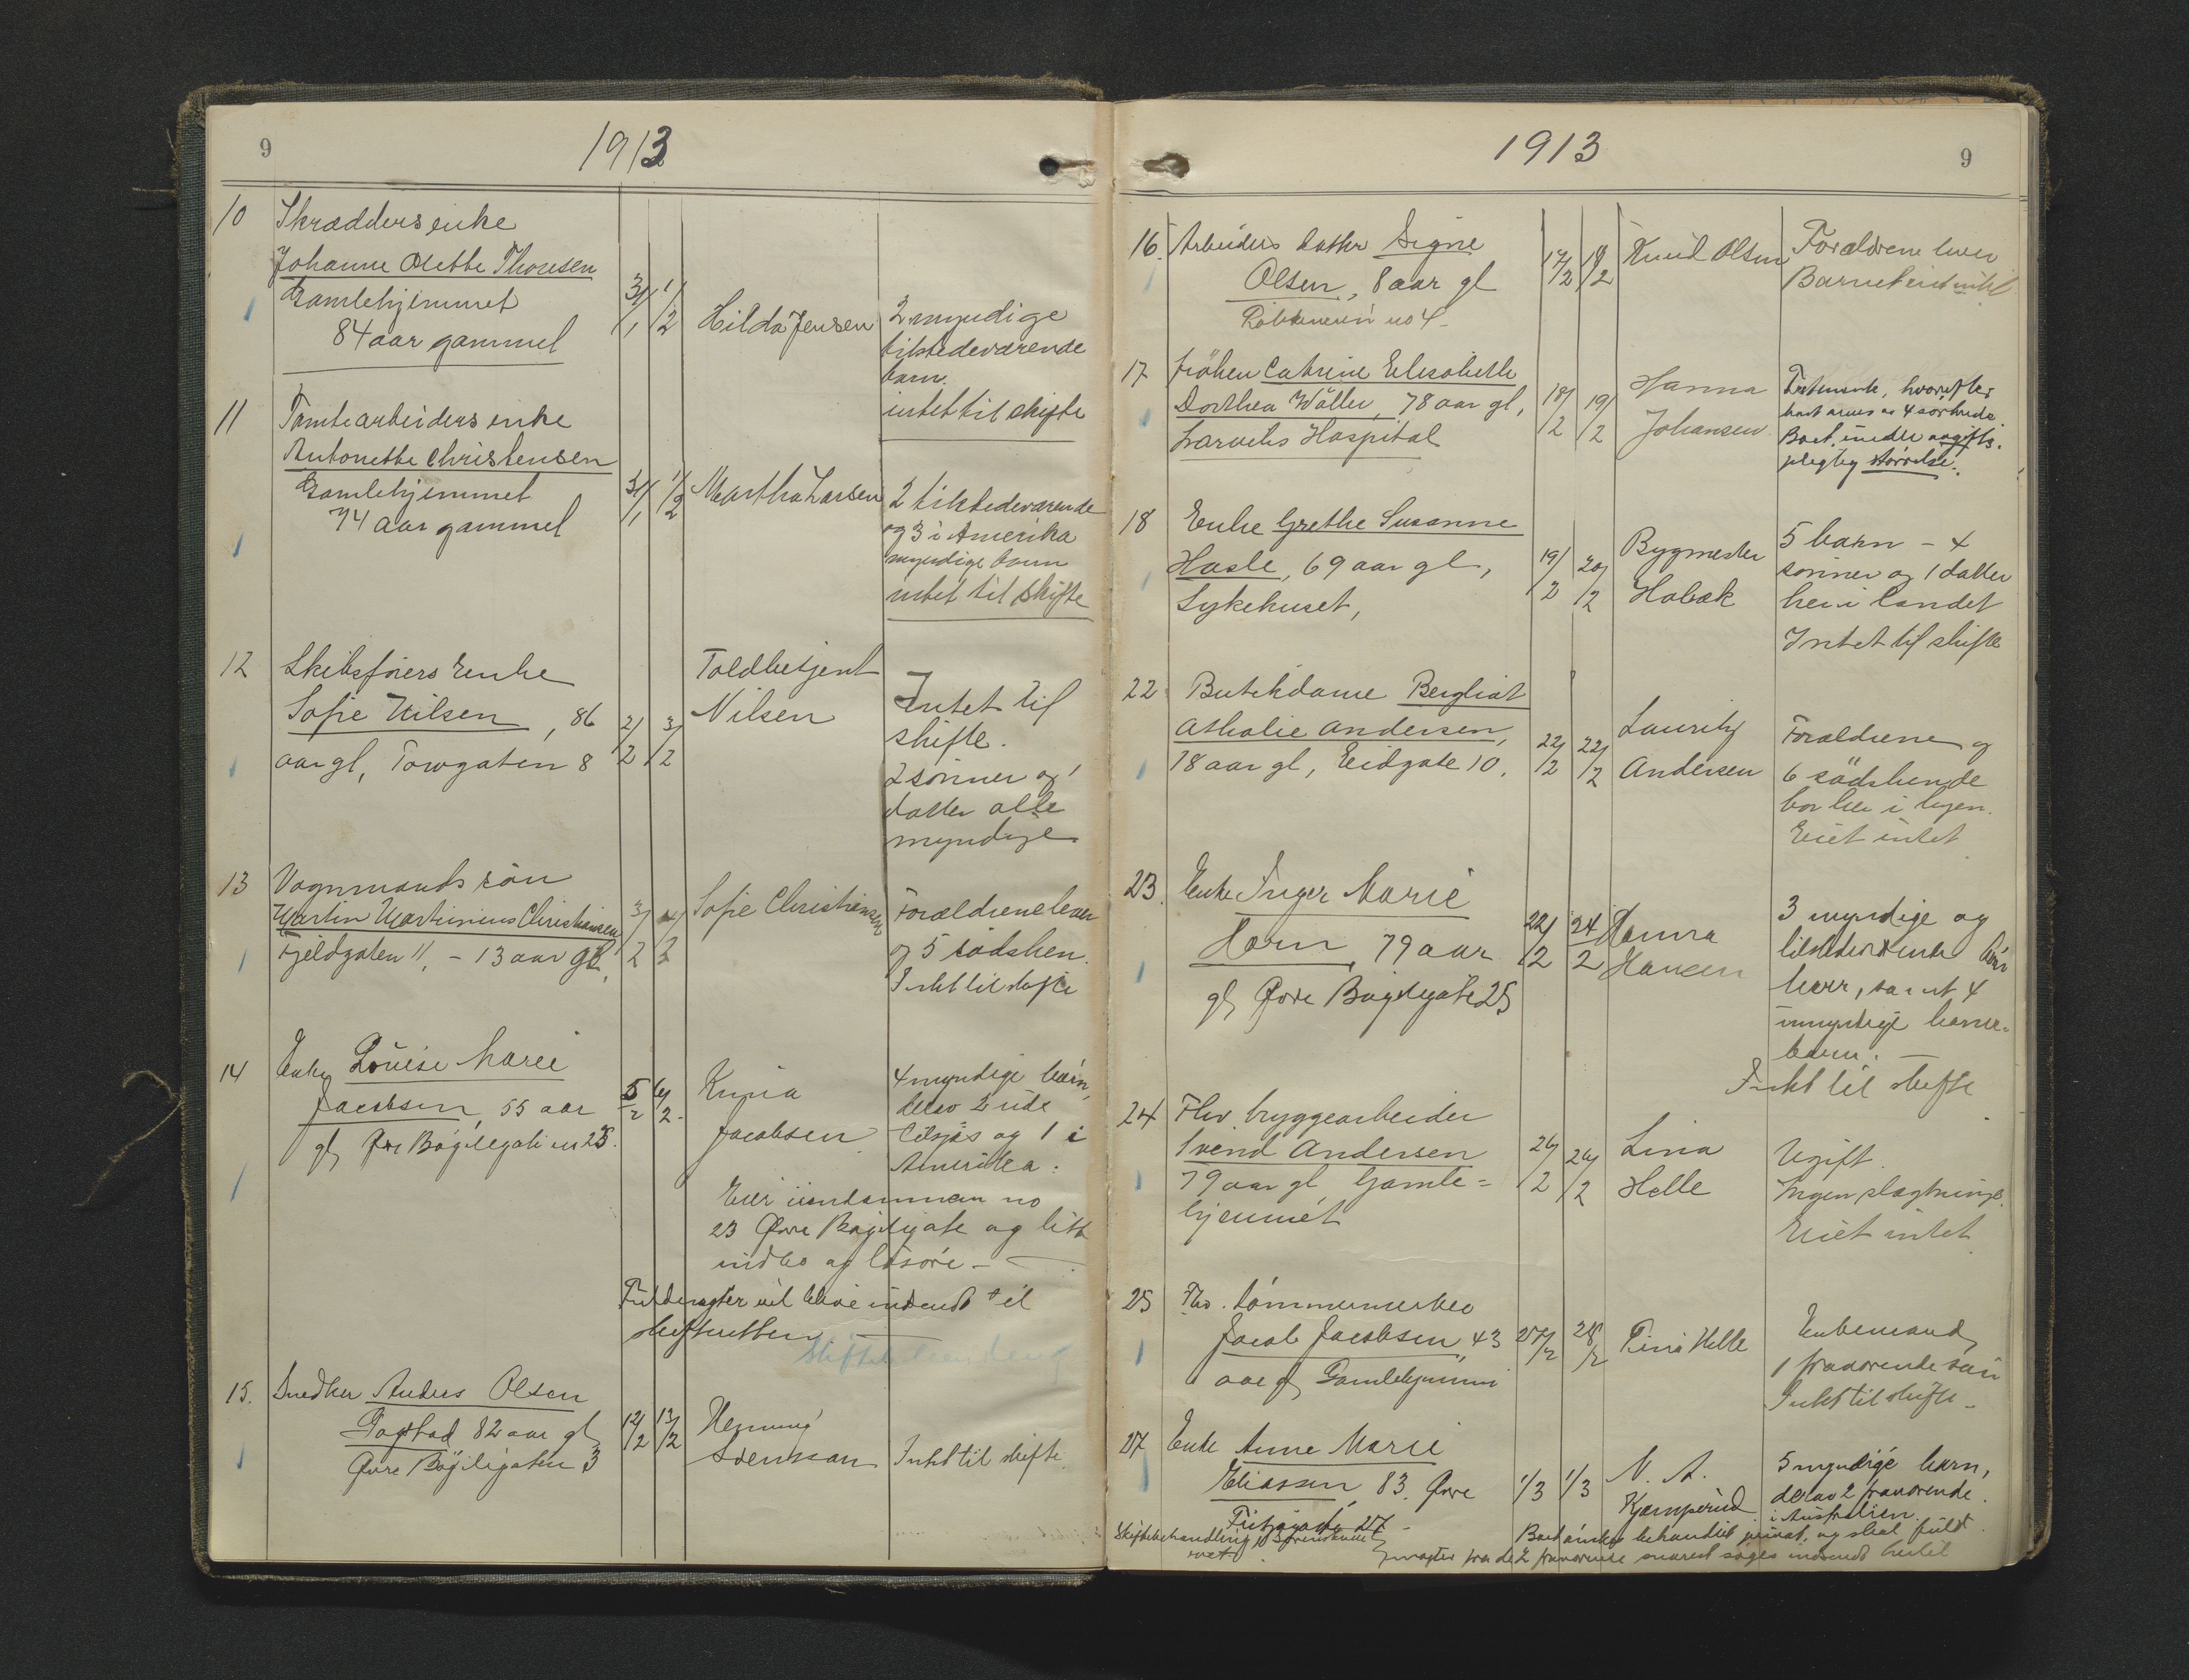 9
1913
10 Skrædders enke
Johanne Olette Thoresen
Gamlehjemmet
84 aar gammel
31/1 1/2 Hilda Jensen
2 myndige
tilstedeværende
barn.
intet til skifte
11 Tomtearbeiders enke
Antonette Christensen
Gamlehjemmet
74 aar gammel
31/1 1/2 Martha Larsen
2 tilstedeværende
og 3 i Amerika
myndige barn
intet til skifte
12 Skibsførers Enke
Sofie Nilsen, 86
aar gl, Torvgaten 8
2/2 3/2
Toldbetjent
Nilsen
Intet til
skifte.
2 sønner og 1
datter alle
myndige
13 Vognmands søn
Martin Martinius Christiansen
Fjeldgaten 11, - 13 aar gl,
3/2 4/2 Sofie Christiansen
Forældrene lever
og 5 södsken.
Intet til skifte
14 Enke Louise Marie
Jacobsen, 55 aar
gl, Øvre Bøgilegate no 23.
5/2 6/2
Jacobsen
4 myndige børn,
derav 2 ude
tilsjøs og 1 i
Amerika.
Eier eiendommen no
23 Øvre Bøgilegate og litt
indbo og løsøre -
Fuldmagter vil blive indsendt til
skifteretten
15. Snedker Anders Olsen
82 aar gl
Øvre Bøgilegaten 3
12/2 13/2 Henning
Svensson
Intet til skifte.
1913
9
16. Arbeiders datter Signe
Olsen, 8 aar gl
no 4.
17/2 18/2 Knud Olsen
Forældrene lever
Barnet eiet intet
17 fröken Catrine Elisabeth
Dorthea Wøller, 78 aar gl,
Larviks Hospital
18/2 19/2 Hanna
Johansen
Testamente, hvorefter
boet arves av 4 sørkende
Boet under avgifts-
pligtig størrelse.
18 Enke Grethe Susanne
Hasle, 69 aar gl,
Sykehuset,
19/2 20/2 Bygmester
Holbæk
5 barn - 4
sønner og 1 datter
her i landet
Intet til skifte
22 Butikdame Bergliot
Athalie Andersen,
18 aar gl, Eidgate 10.
22/2 22/2 Lauritz
Andersen
Forældrene og
6 södskende
bor her i byen.
Eiet intet
23. Enke Inger Marie
Horn, 79 aar
gl, Øvre Bøgilegate 25
22/2 24/2 Hanna
Hansen
3 myndige og
tilstedeværende børn
herr, samt 4
umyndige barne-
barn. -
Intet til skifte
24 Fhv. bryggearbeider
Svend Andersen
79 aar gl, Gamle-
hjemmet
26/2 26/2 Lina
Helle
Ugift.
Ingen slægtninge.
Eiet intet
25 Fhv. tømmermerker
Jacob Jacobsen, 43
aar gl, Gamlehjemmet
27/2 28/2 Lina Helle
Enkemand,
1 fraværende søn
Intet til skifte -
27 Enke Anne Marie
Eliassen, 83. Øvre
Fritzøgate 27 -
1/3 1/3 N. A.
Kjemperud
5 myndige børn,
derav 2 fraværende
i Australien.
Boet ønskes behandlet privat, og skal fuld-
magter fra de 2 fraværende snarest søges indsendt hertil
Skiftebehandling